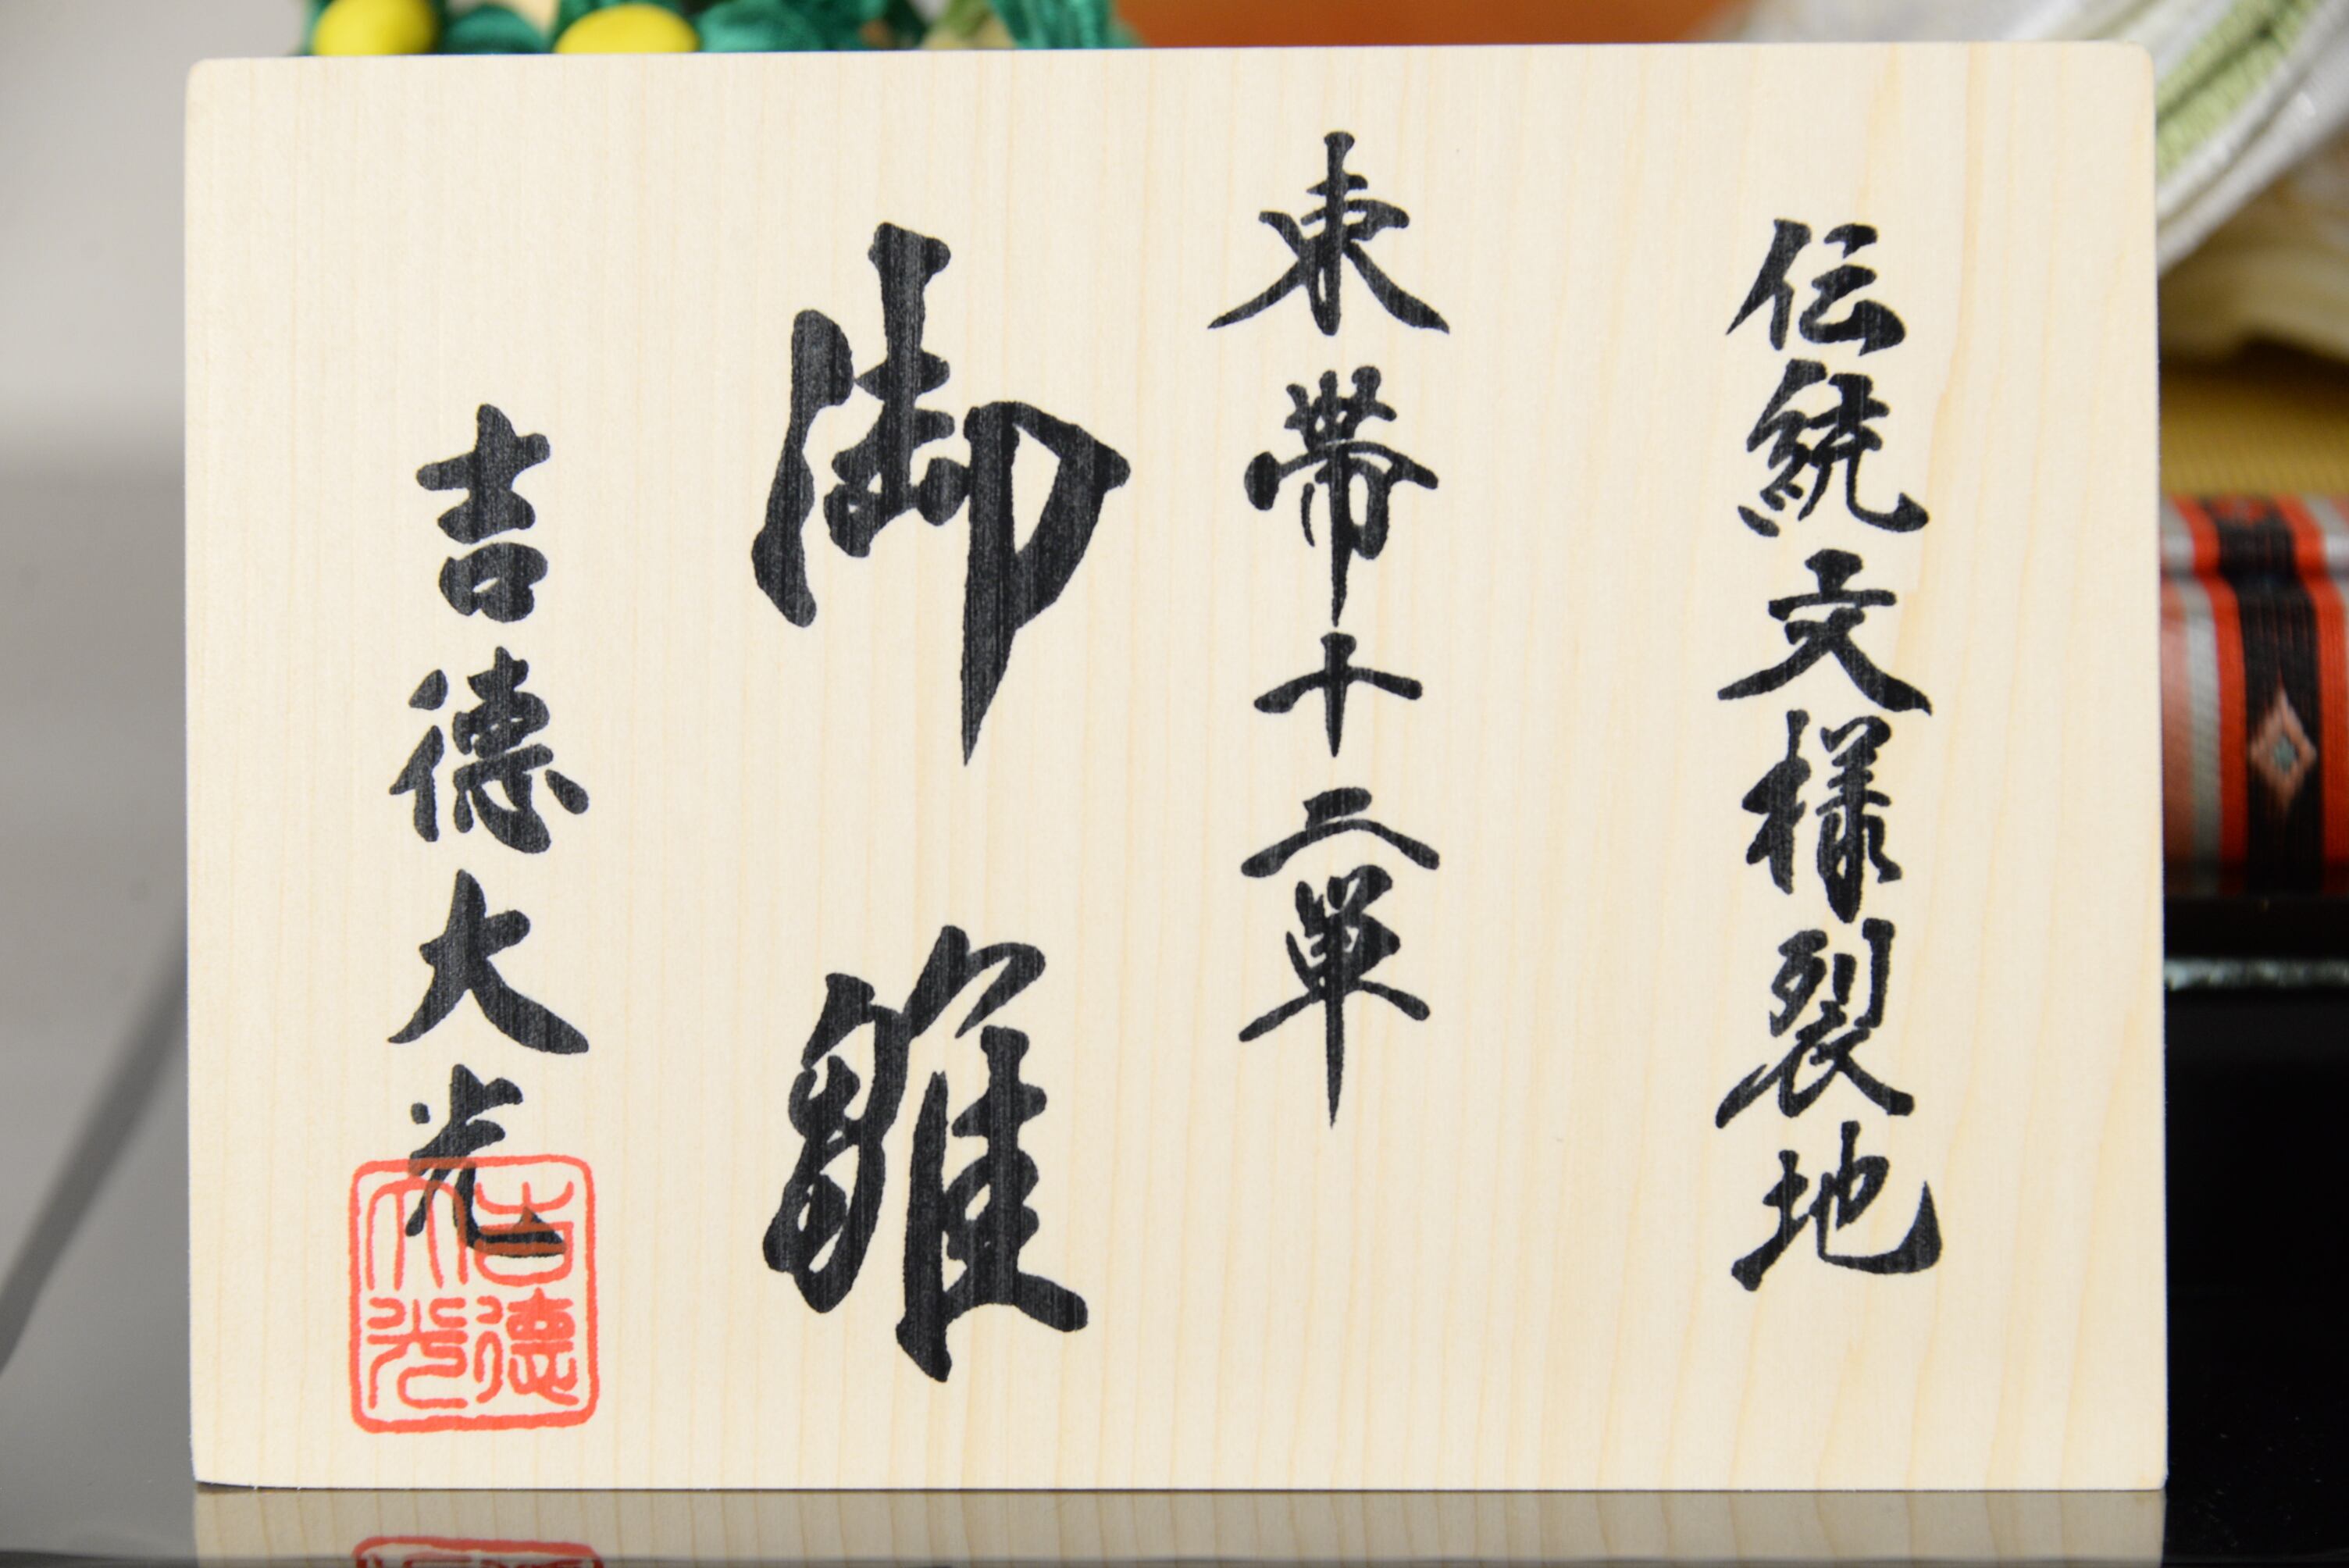 伝統文様裂地
束帯十二単
御雛
吉徳大光
吉德大光